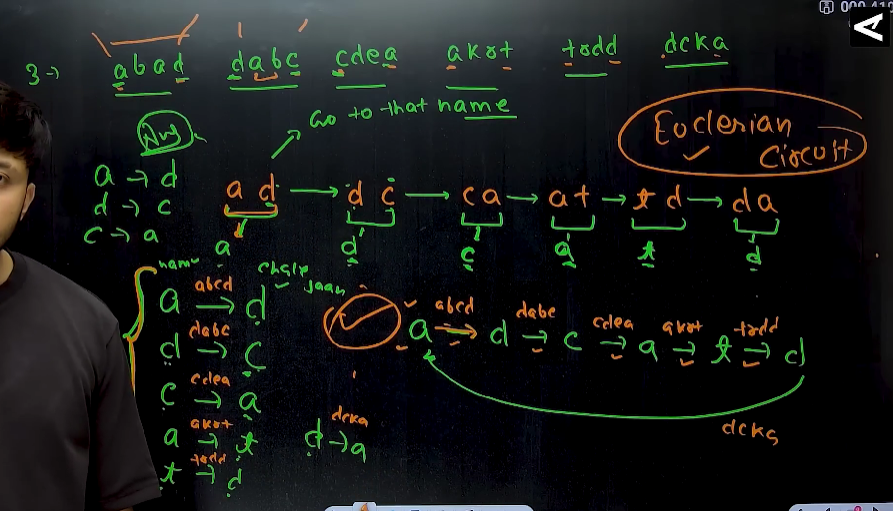 3→ abad dabc cdea akot todd dcka
Go to that name
Ans
Euclerian
Circuit
a → d
d → c
c → a
a d → d c → c a → a t → t d → d a
a d c a t d
name chale jaan
a abcd → d
d dabc → c
c cdea → a
a akot → t
t todd → d
d dcka → a
a abcd → d dabc → c cdea → a akot → t todd → d
dcka